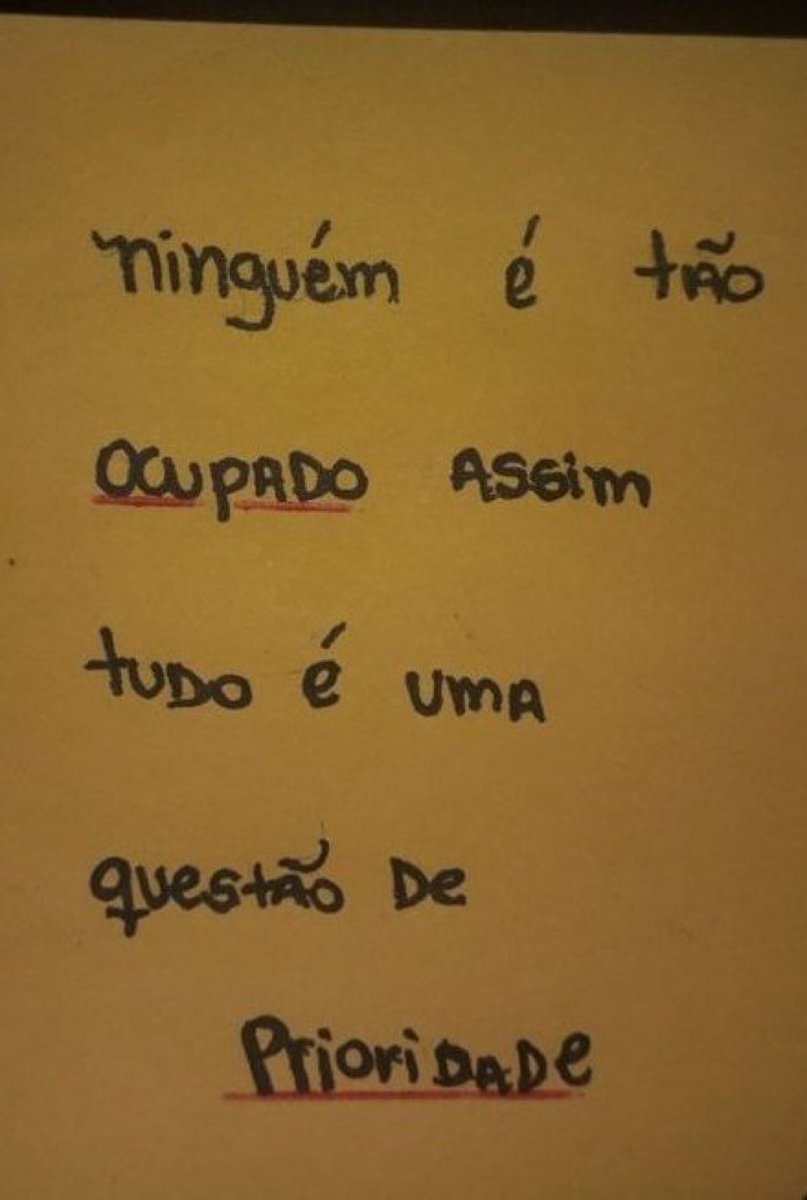 ninguém é tão
ocupado assim
tudo é uma
questão de
Prioridade